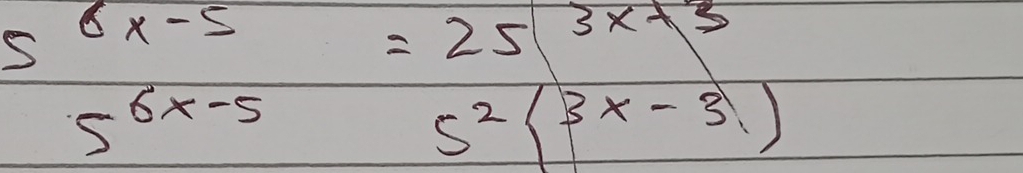 5^{6x-5} = 25^{3x+3}
5^{6x-5} 5^{2(3x-3)}